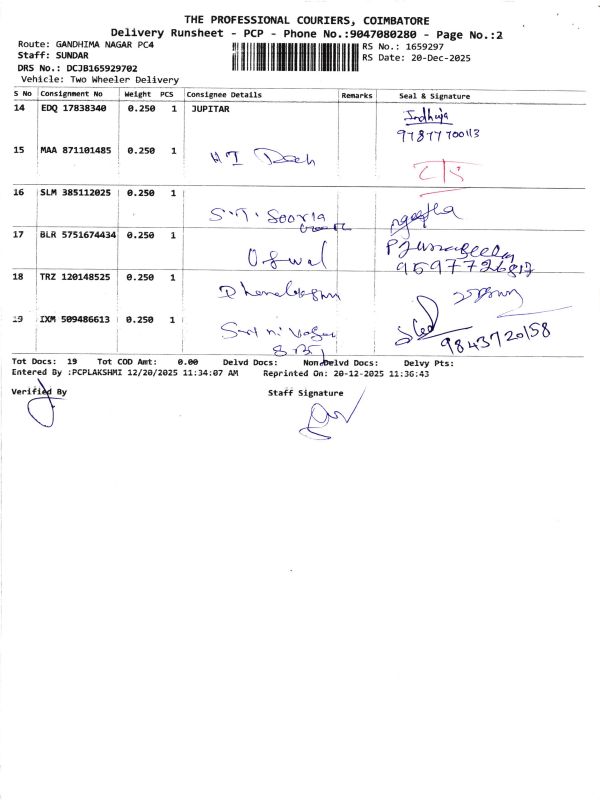 THE PROFESSIONAL COURIERS, COIMBATORE
Delivery Runsheet - PCP - Phone No.:9047080280 - Page No.:2
Route: GANDHIMA NAGAR PC4 RS No.: 1659297
Staff: SUNDAR RS Date: 20-Dec-2025
DRS No.: DCJB165929702
Vehicle: Two Wheeler Delivery
S No Consignment No Weight PCS Consignee Details Remarks Seal & Signature
14 EDQ 17838340 0.250 1 JUPITAR Indhuja
15 MAA 871101485 0.250 1
16 SLM 385112025 0.250 1
17 BLR 5751674434 0.250 1
9597726817
18 TRZ 120148525 0.250 1
19 IXM 509486613 0.250 1
9843720158
Tot Docs: 19 Tot COD Amt: 0.00 Delvd Docs: Non-Delvd Docs: Delvy Pts:
Entered By :PCPLAKSHMI 12/20/2025 11:34:07 AM Reprinted On: 20-12-2025 11:36:43
Verified By Staff Signature